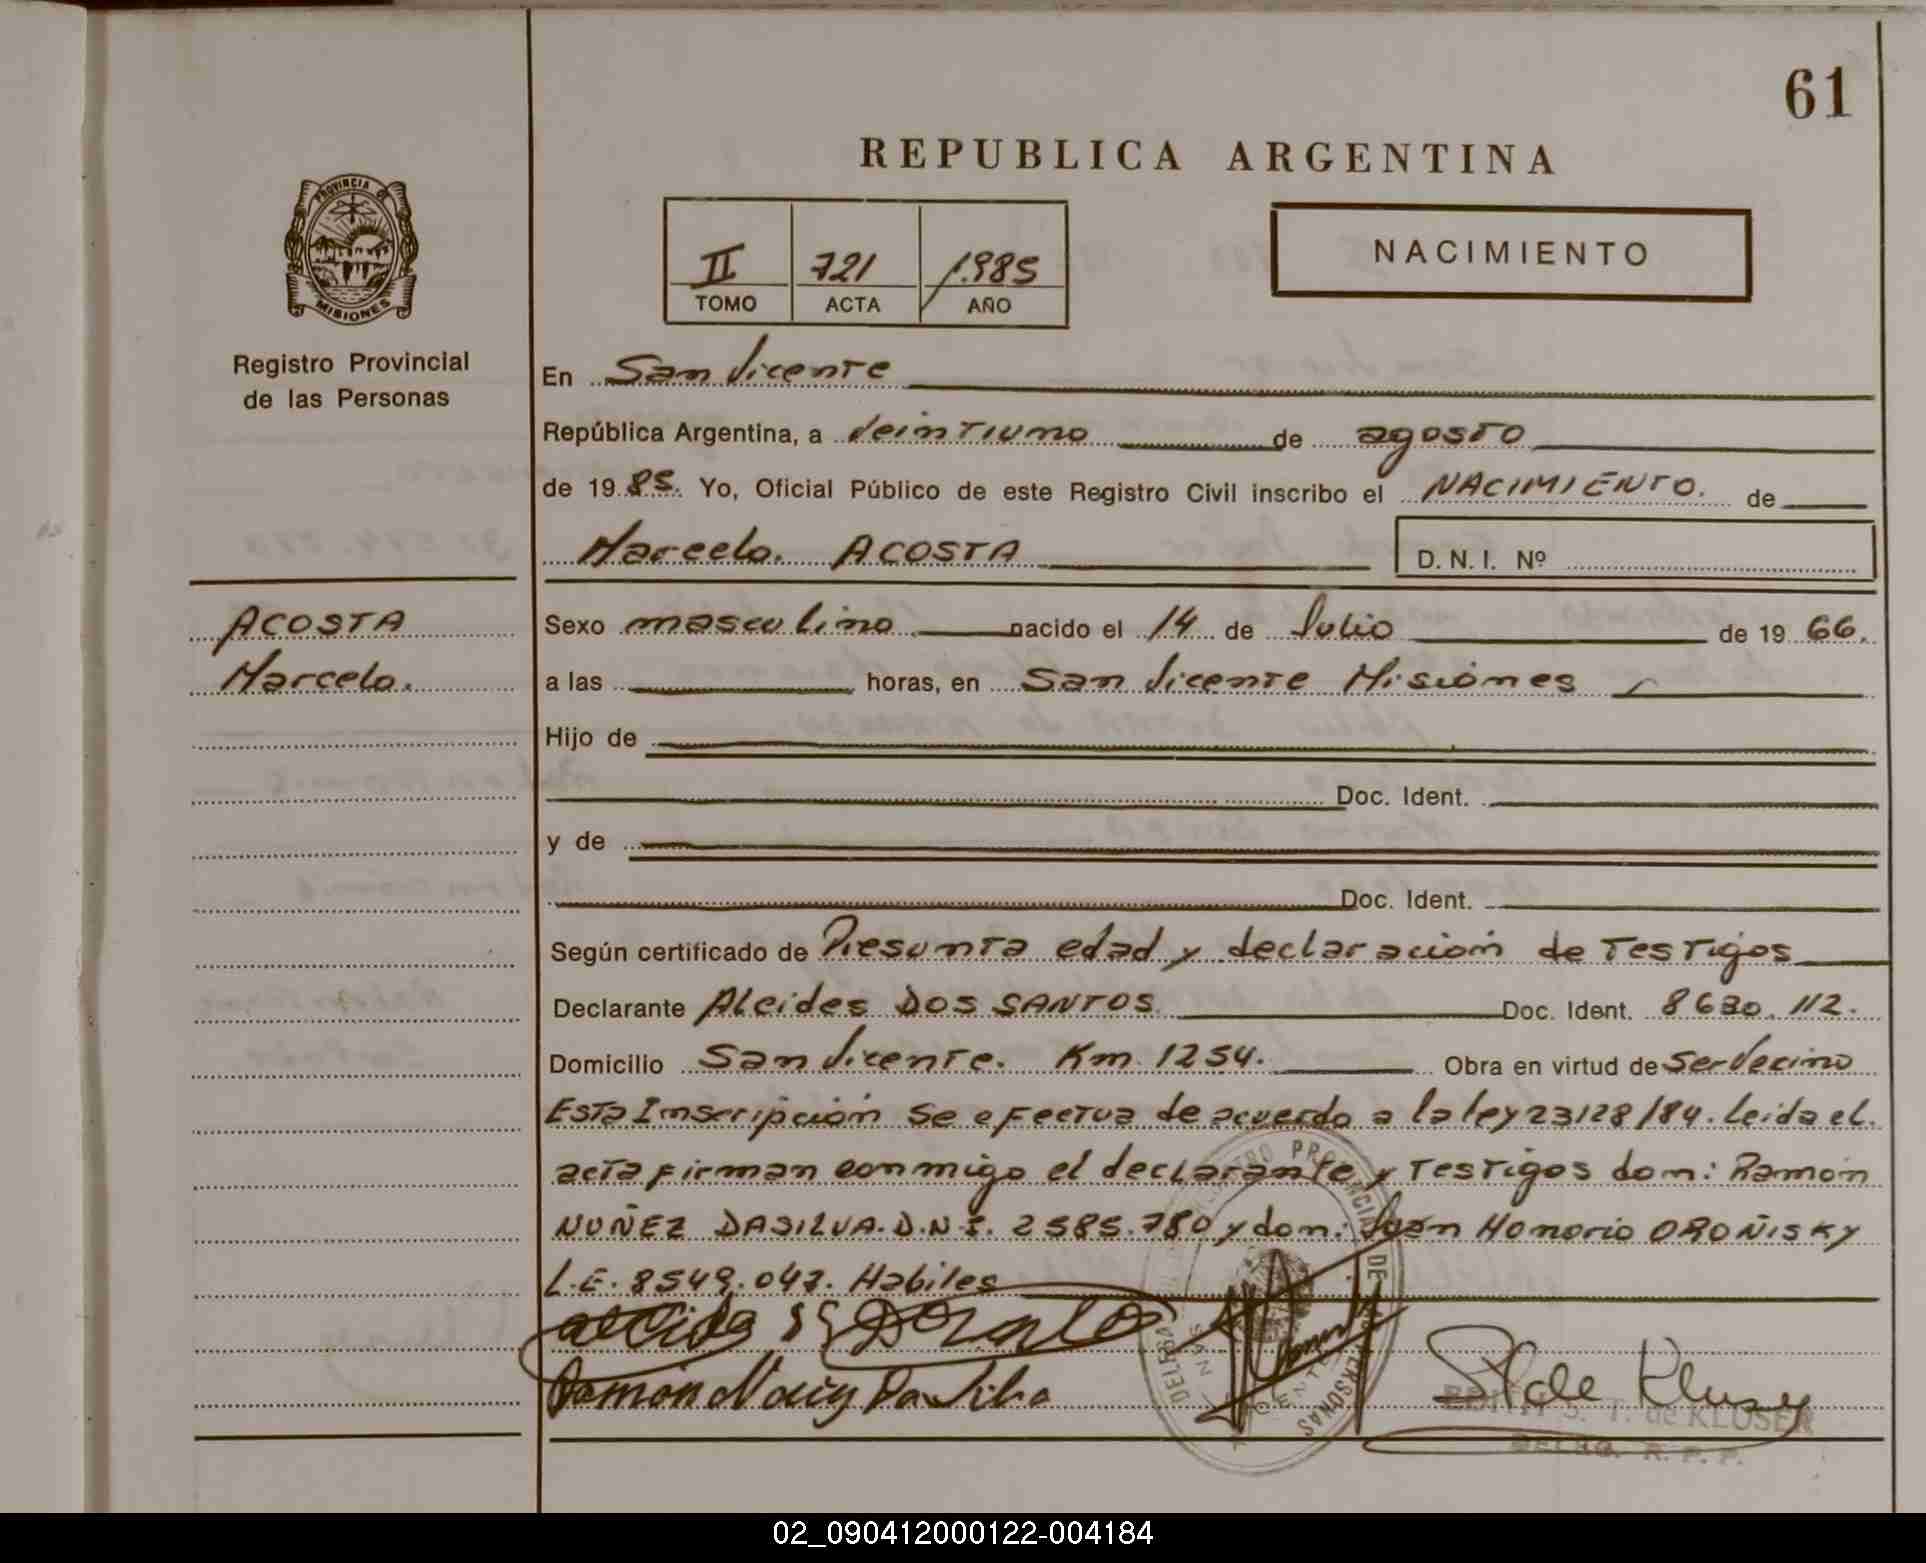 61
REPUBLICA ARGENTINA
PROVINCIA DE
MISIONES
Registro Provincial
de las Personas
II 721 1.985
TOMO ACTA AÑO
NACIMIENTO
En San Vicente
República Argentina, a Veintiuno de agosto
de 19 85. Yo, Oficial Público de este Registro Civil inscribo el NACIMIENTO. de
Marcelo. ACOSTA D. N. I. Nº
ACOSTA
Marcelo.
Sexo masculino nacido el 14 de Julio de 19 66.
a las horas, en San Vicente Misiones
Hijo de
Doc. Ident.
y de
Doc. Ident.
Según certificado de Presunta edad y declaración de Testigos
Declarante Alcides DOS SANTOS. Doc. Ident. 8630.112.
Domicilio San Vicente. Km. 1254. Obra en virtud de Ser Vecino
Esta Inscripción Se efectua de acuerdo a la ley 23128/84. Leida el
acta firman conmigo el declarante y Testigos don: Ramón
NUÑEZ DASILVA. D.N.I. 2585.780 y don: Juan Honorio OROÑISKY
L.E. 8549.047. Habiles
Ramón Da Silva
EDITH S. T. de KLUSER
DELEG. R. P. P.
02_090412000122-004184